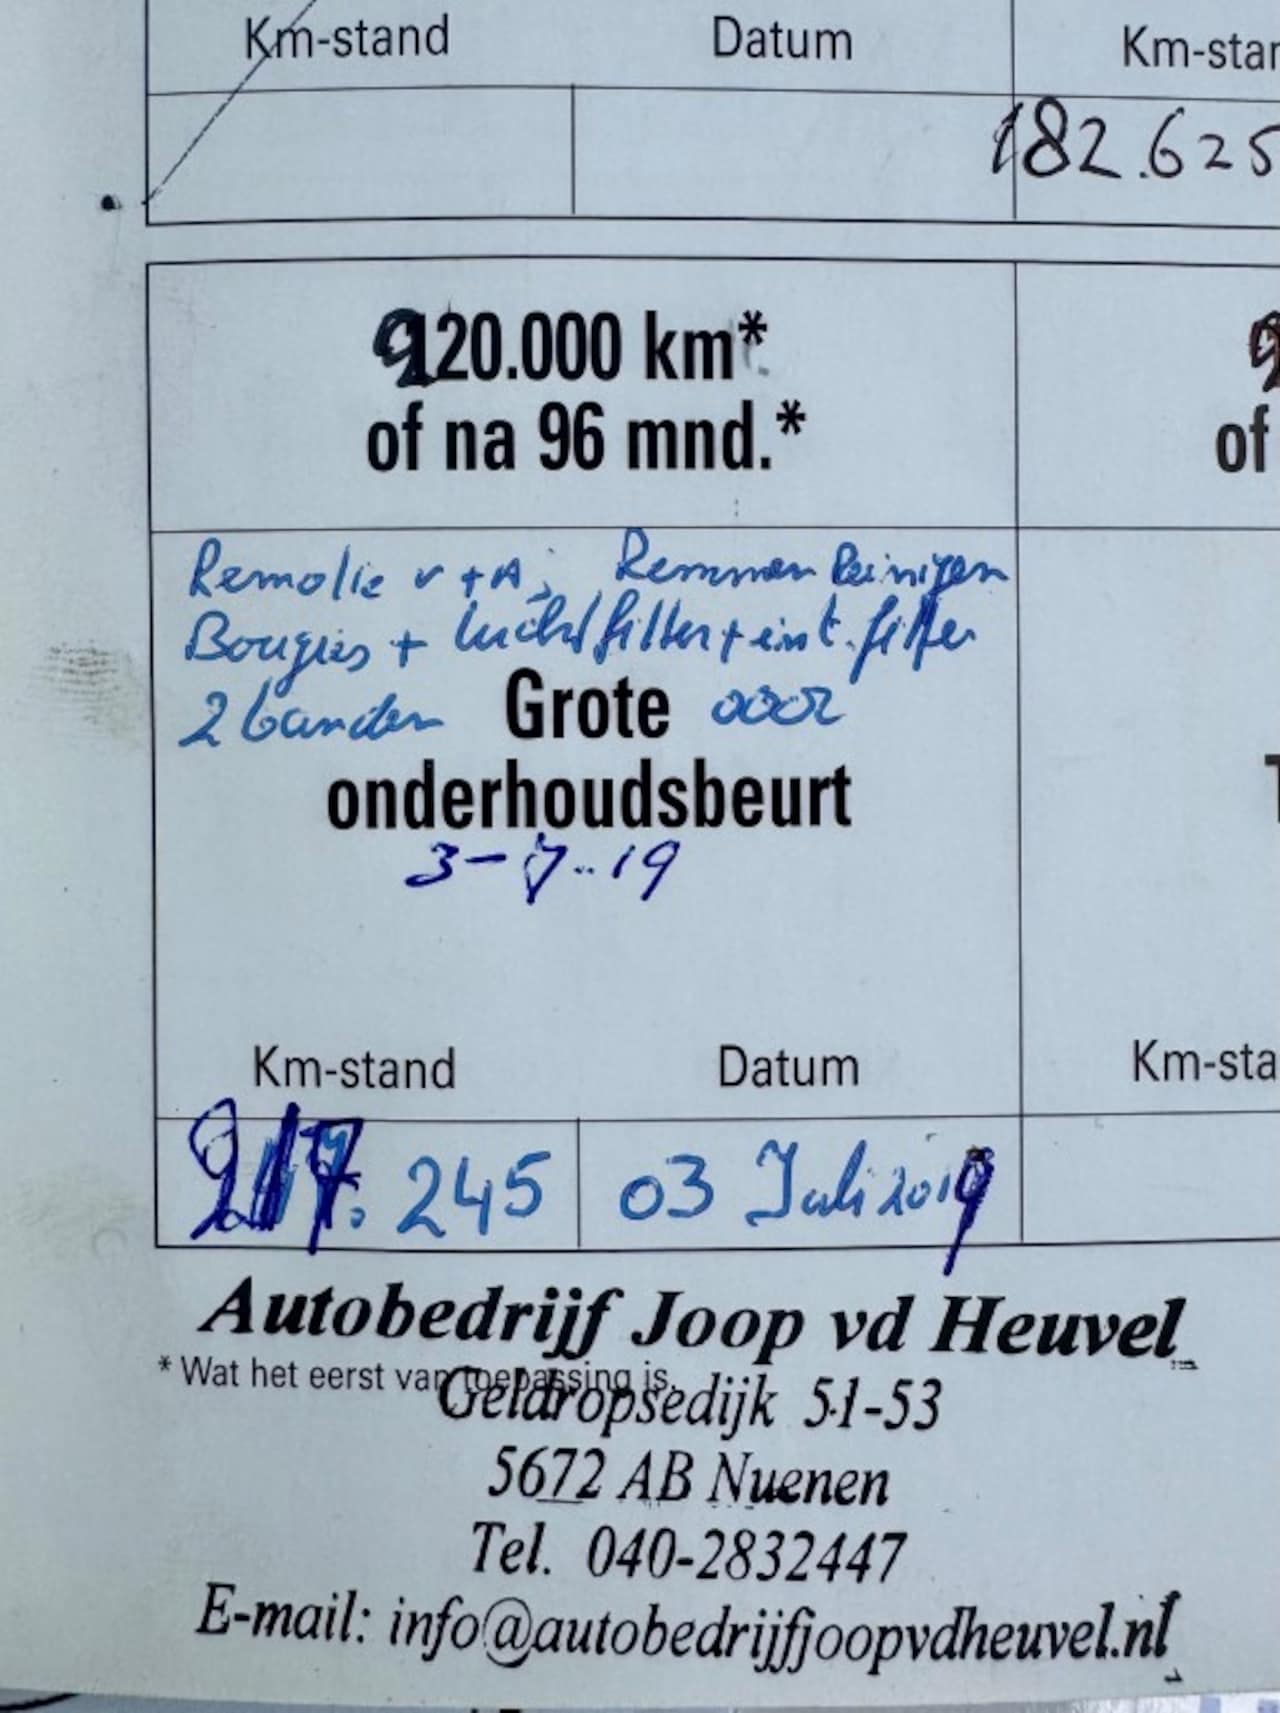 Km-stand Datum Km-star
182.625
220.000 km*
of na 96 mnd.* of
Remolie v + A, Remmen Reinigen
Bougies + luchtfilter + int. filter
2 banden Grote voor
onderhoudsbeurt
3-7-19
Km-stand Datum Km-sta
217.245 03 Juli 2019
Autobedrijf Joop vd Heuvel
* Wat het eerst van toepassing is.
Geldropsedijk 51-53
5672 AB Nuenen
Tel. 040-2832447
E-mail: info@autobedrijfjoopvdheuvel.nl